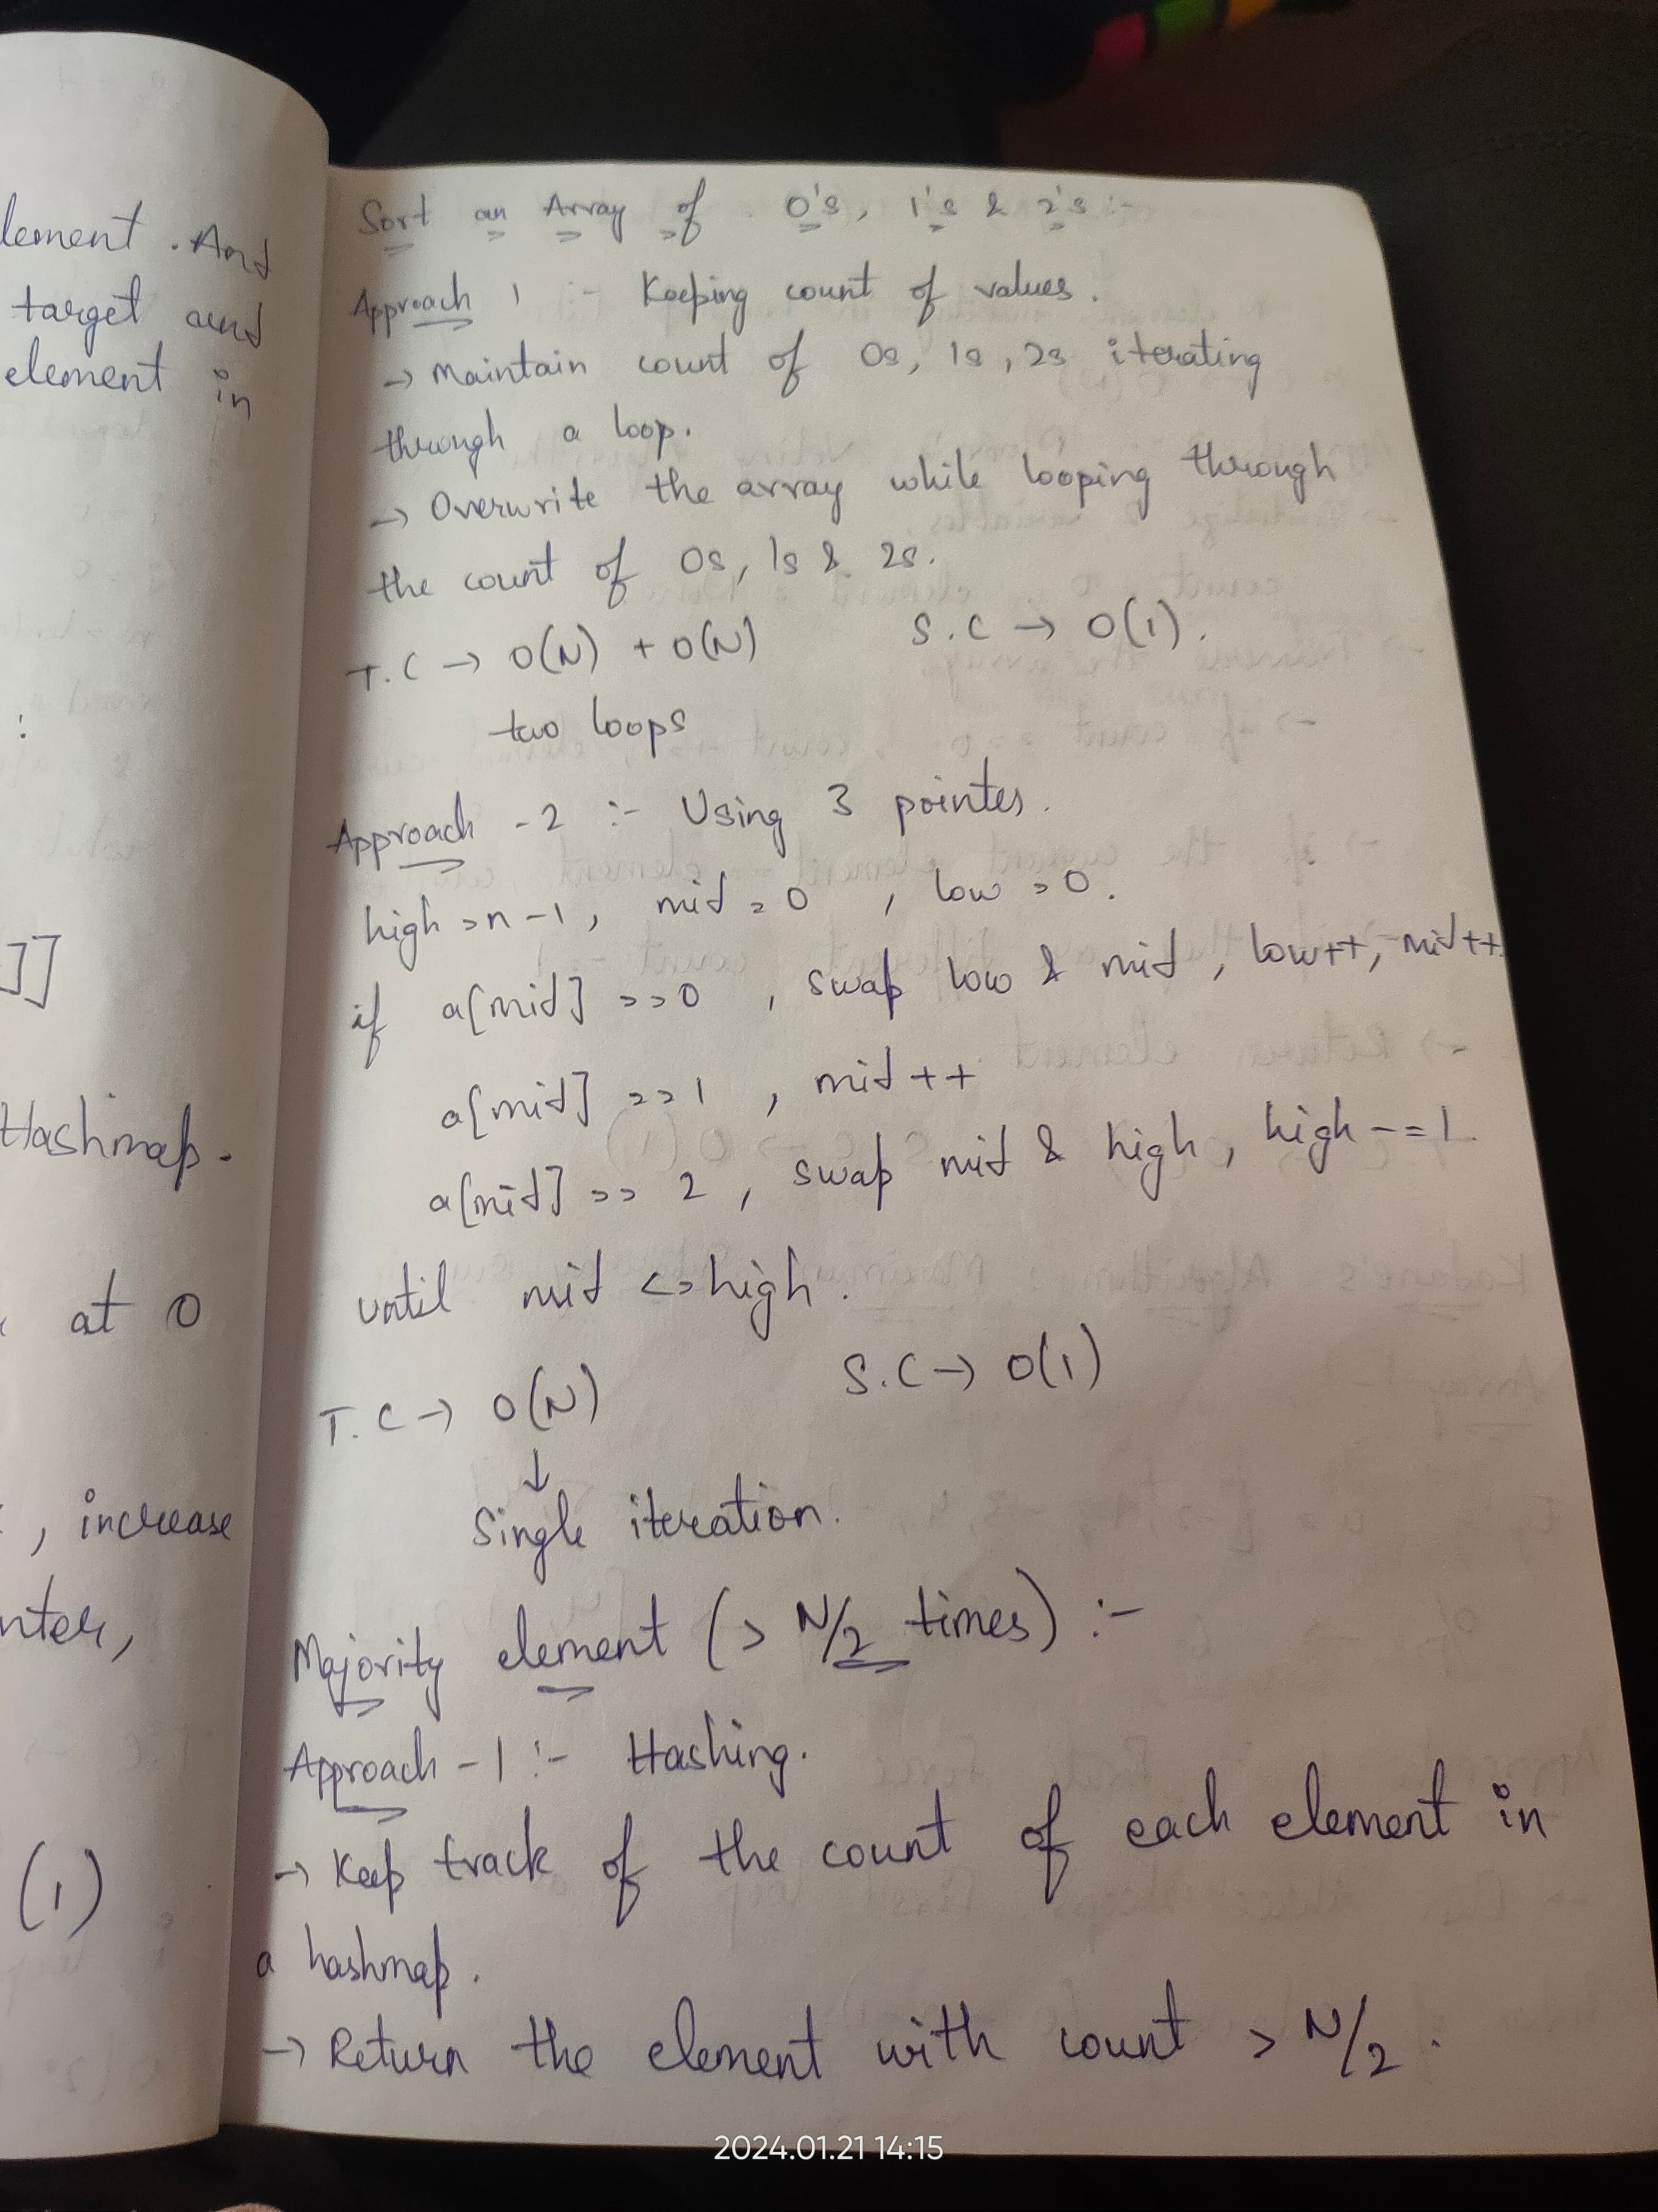 lement. And
target and
element in
:
]]
Hashmap.
at 0
, increase
nter,
(1)
Sort an Array of 0's, 1's & 2's :-
Approach 1 :- Keeping count of values.
→ Maintain count of 0s, 1s, 2s iterating
through a loop.
→ Overwrite the array while looping through
the count of 0s, 1s & 2s.
T.C → O(N) + O(N) S.C → O(1).
two loops
Approach - 2 :- Using 3 pointes.
high = n-1, mid = 0, low = 0.
if a[mid] == 0, swap low & mid, low++, mid++.
a[mid] == 1, mid++
a[mid] == 2, swap mid & high, high -= 1
until mid <= high.
T.C → O(N) S.C → O(1)
↓
Single iteration.
Majority element (> N/2 times) :-
Approach - 1 :- Hashing.
→ Keep track of the count of each element in
a hashmap.
→ Return the element with count > N/2.
2024.01.21 14:15